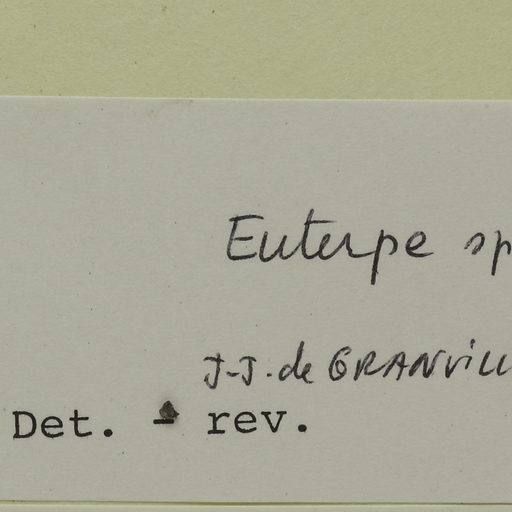 Euterpe sp
J-J. de GRANVILL
Det. - rev.